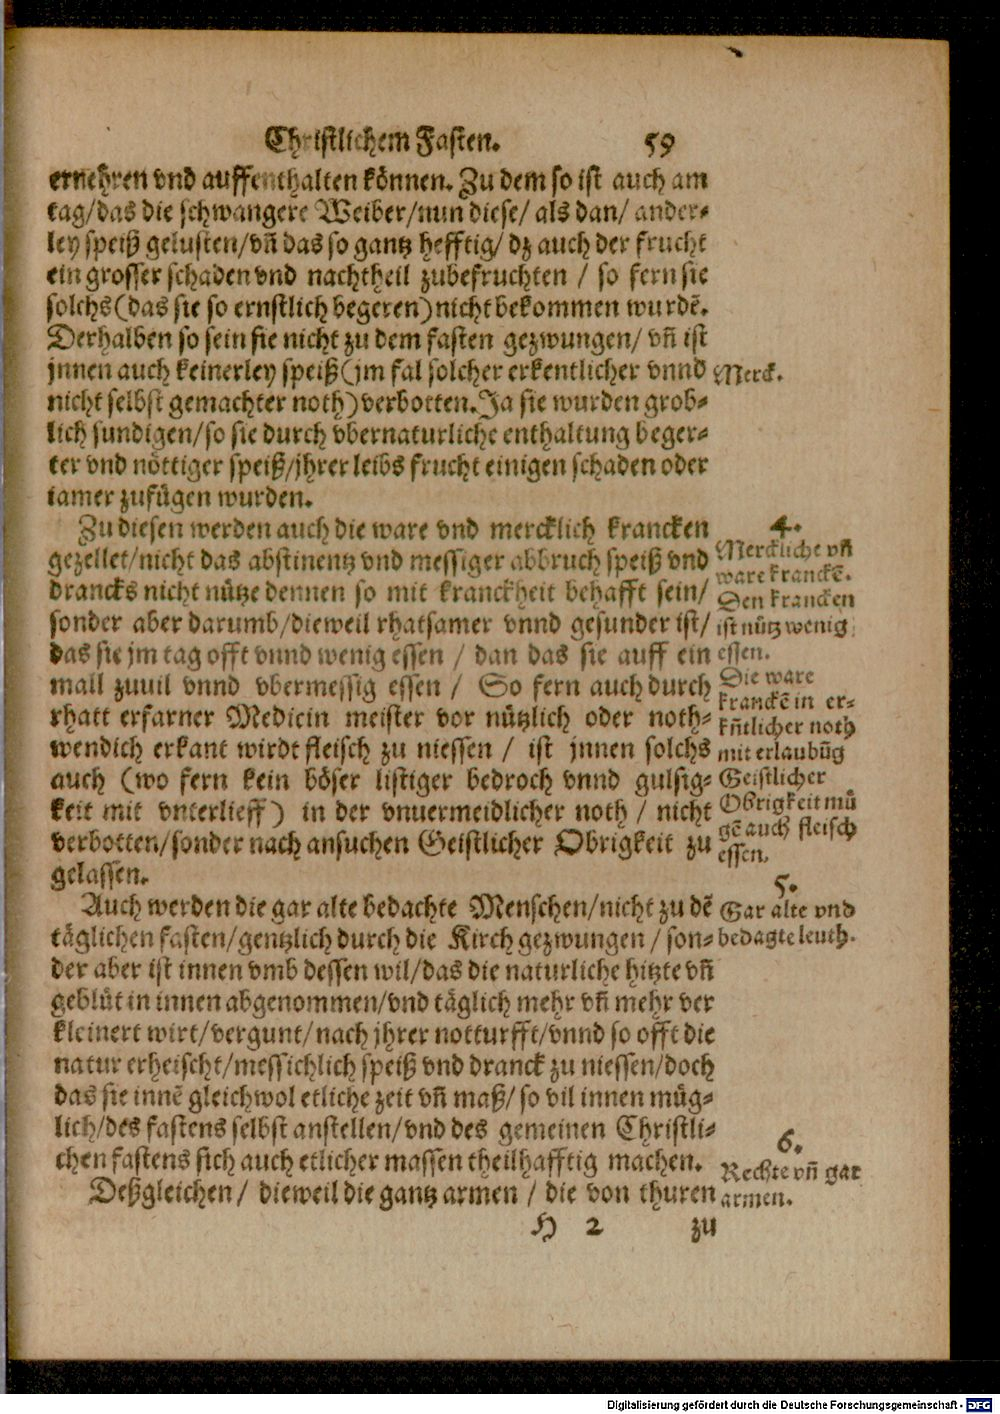 Christlichem Fasten. 59
ernehren vnd auffenthalten können. Zu dem so ist auch am
tag/das die schwangere Weiber/nun diese/ als dan/ ander-
ley speiß gelusten/vñ das so gantz hefftig/ dz auch der frucht
ein grosser schaden vnd nachtheil zubefruchten / so fern sie
solchs (das sie so ernstlich begeren) nicht bekommen wurdẽ.
Derhalben so sein sie nicht zu dem fasten gezwungen/ vñ ist
jnnen auch keinerley speiß (jm fal solcher erkentlicher vnnd
Merck.
nicht selbst gemachter noth) verbotten. Ja sie wurden grob-
lich sundigen/so sie durch vbernaturliche enthaltung beger-
ter vnd nöttiger speiß/jhrer leibs frucht einigen schaden oder
iamer zufügen wurden.
Zu diesen werden auch die ware vnd mercklich krancken
gezellet/nicht das abstinentz vnd messiger abbruch speiß vnd
drancks nicht nütze dennen so mit kranckheit behafft sein/
sonder aber darumb/dieweil rhatsamer vnnd gesunder ist/
das sie jm tag offt vnnd wenig essen / dan das sie auff ein
mall zuuil vnnd vbermessig essen / So fern auch durch
rhatt erfarner Medicin meister vor nützlich oder noth-
wendich erkant wirdt fleisch zu niessen / ist jnnen solchs
auch (wo fern kein böser listiger bedroch vnnd gulsig-
keit mit vnterlieff) in der vnuermeidlicher noth / nicht
verbotten/sonder nach ansuchen Geistlicher Obrigkeit zu
gelassen.
4.
Merckliche vñ
ware kranckẽ.
Den krancken
ist nütz wenig
essen.
Die ware
kranckẽ in er-
kñtlicher noth
mit erlaubũg
Geistlicher
Obrigkeit mü
gẽ auch fleisch
essen.
Auch werden die gar alte bedachte Menschen/nicht zu dẽ
täglichen fasten/gentzlich durch die Kirch gezwungen / son-
der aber ist innen vmb dessen wil/das die naturliche hitzte vñ
geblüt in innen abgenommen/vnd täglich mehr vñ mehr ver
kleinert wirt/vergunt/nach jhrer notturfft/vnnd so offt die
natur erheischt/messichlich speiß vnd dranck zu niessen/doch
das sie innẽ gleichwol etliche zeit vñ maß/ so vil innen müg-
lich/des fastens selbst anstellen/vnd des gemeinen Christli-
chen fastens sich auch etlicher massen theilhafftig machen.
5.
Gar alte vnd
bedagte leuth.
Deßgleichen/ dieweil die gantz armen / die von thuren
6.
Rechte vñ gar
armen.
H 2 zu
Digitalisierung gefördert durch die Deutsche Forschungsgemeinschaft - DFG